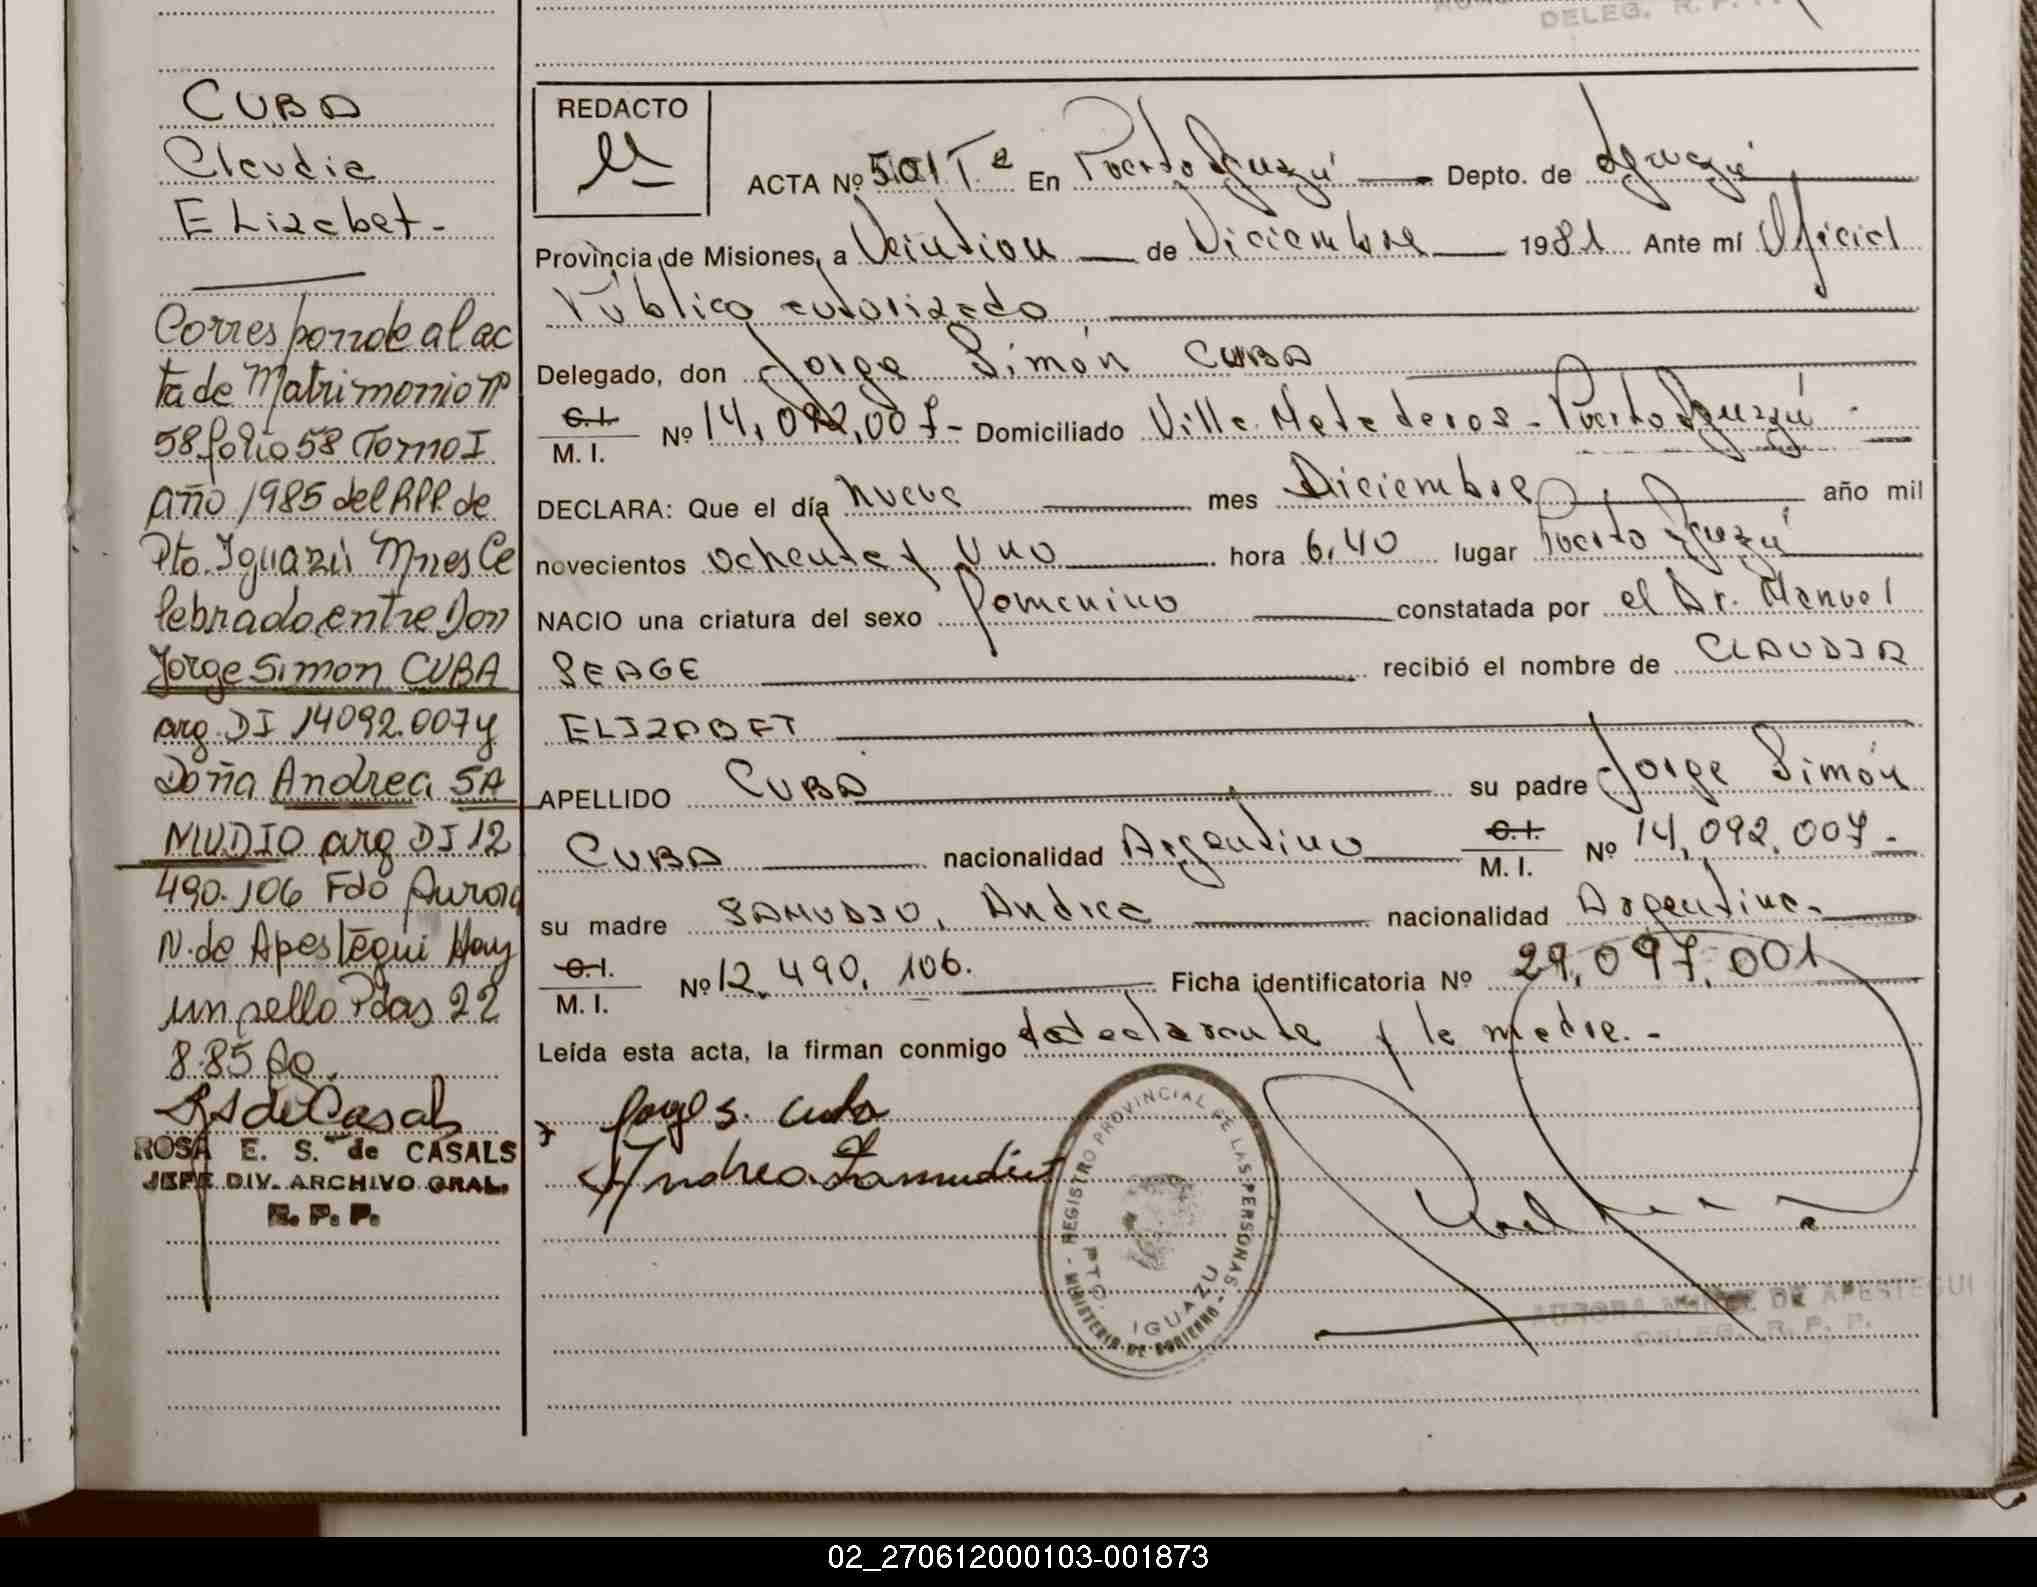 DELEG. R. P. P.
CUBA
Claudia
ELizabet-
Corresponde al ac
ta de Matrimonio nº
58 folio 58 Tomo I
año 1985 del RPP. de
Pto. Iguazú Mnes Ce
lebrado entre Don
Jorge Simon CUBA
arg. DI 14092.007 y
Doña Andrea SA
MUDIO arg DI 12
490.106 Fdo Aurora
N. de Apestegui Hay
un sello Pdas 22
8.85
ROSA E. S. de CASALS
JEFE DIV. ARCHIVO GRAL.
R. P. P.
REDACTO
ACTA Nº 501 Tº En Puerto Iguazú Depto. de Iguazú
Provincia de Misiones, a Veintiun de Diciembre 1981 Ante mí Oficial
Público autorizado
Delegado, don Jorge Simón CUBA
C.I.
M. I. Nº 14,092,007- Domiciliado Villa Mataderos - Puerto Iguazú -
DECLARA: Que el día nueve mes Diciembre año mil
novecientos ochenta y Uno hora 6,40 lugar Puerto Iguazú
NACIO una criatura del sexo Femenino constatada por el Dr. Manuel
SEAGE recibió el nombre de CLAUDIA
ELIZABET
APELLIDO CUBA su padre Jorge Simón
CUBA nacionalidad Argentino C.I. M. I. Nº 14,092,007-
su madre SAMUDIO, Andrea nacionalidad Argentina.
C.I.
M. I. Nº 12,490,106. Ficha identificatoria Nº 29,097,001
Leída esta acta, la firman conmigo declarante y la madre.-
Jorge S. Cuba
Andrea Samudio
REGISTRO PROVINCIAL DE LAS PERSONAS - MINISTERIO DE GOBIERNO -
PTO. IGUAZU
AURORA NUÑEZ DE APESTEGUI
DELEG. R. P. P.
02_270612000103-001873